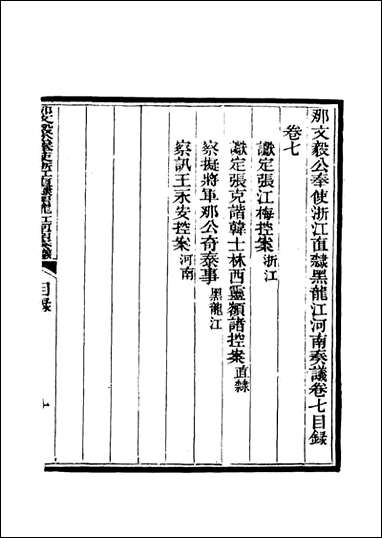 那文毅公奉使浙江直隸黑龍江河南奏議卷七目錄
卷七
讞定張江梅控案浙江
讞定張克諧韓士林西靈額諸控案直隸
察擬將軍那公奇泰事黑龍江
察訊王永安控案河南
那文毅公奉使浙江直隸黑龍江河南奏議
目錄